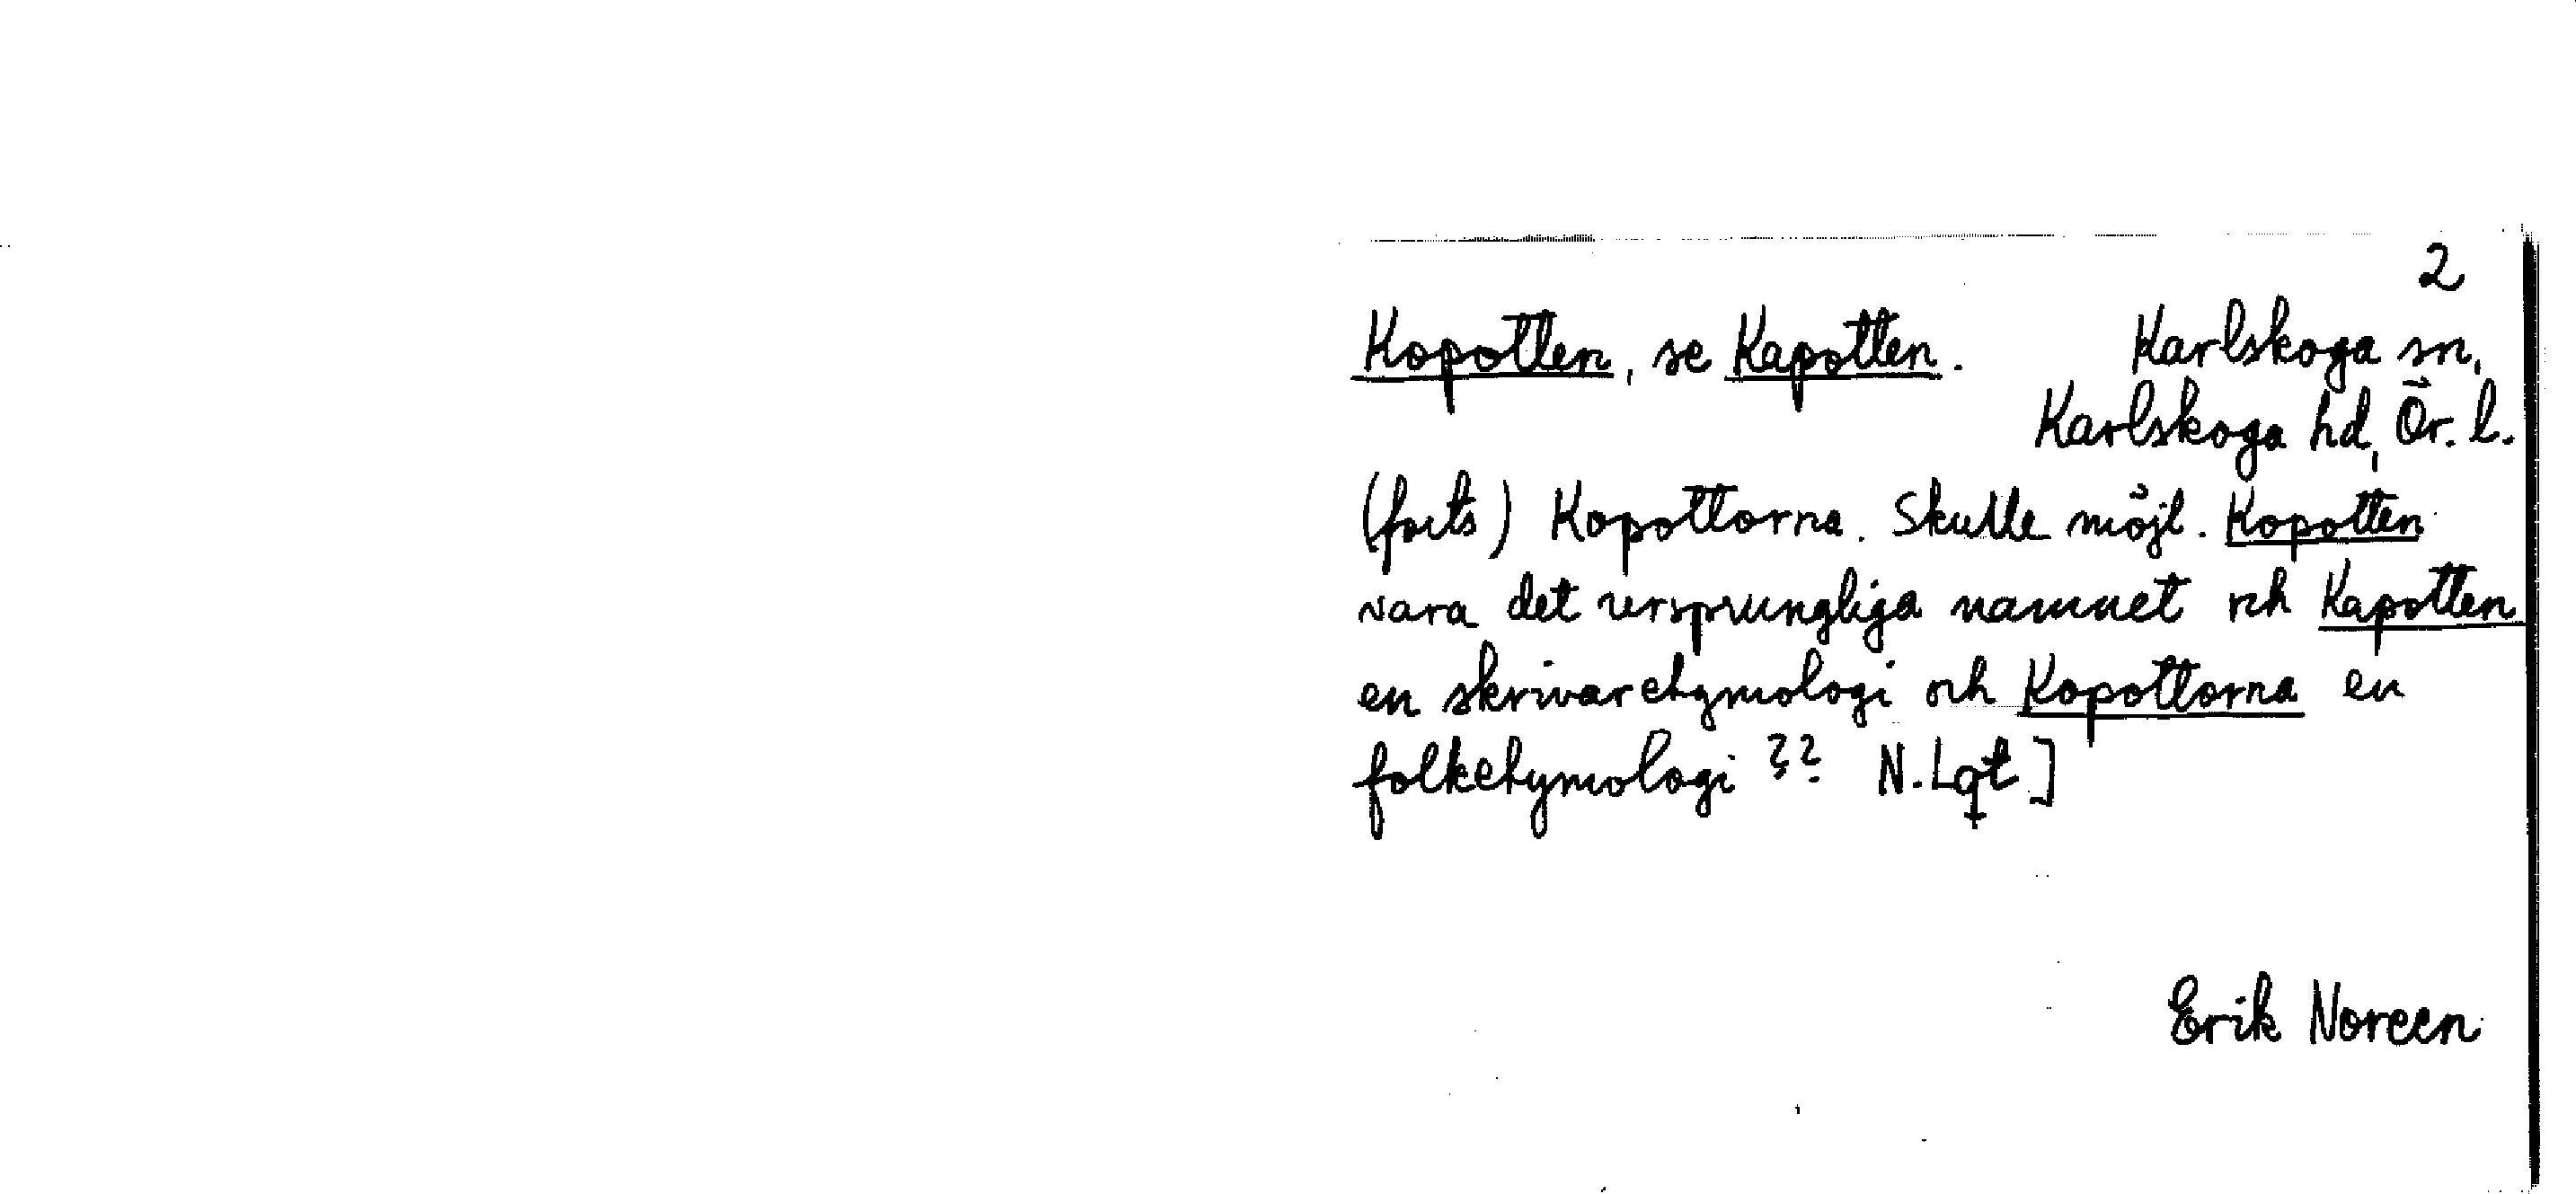 2
Kopotten, se Kapotten. Karlskoga sn,
Karlskoga hd, Ör. l.
(forts) Kopottorna. Skulle möjl. Kopotten
vara det ursprungliga namnet och Kapotten
en skrivaretymologi och Kopottorna en
folketymologi ?? N. Lqt]
Erik Noreen